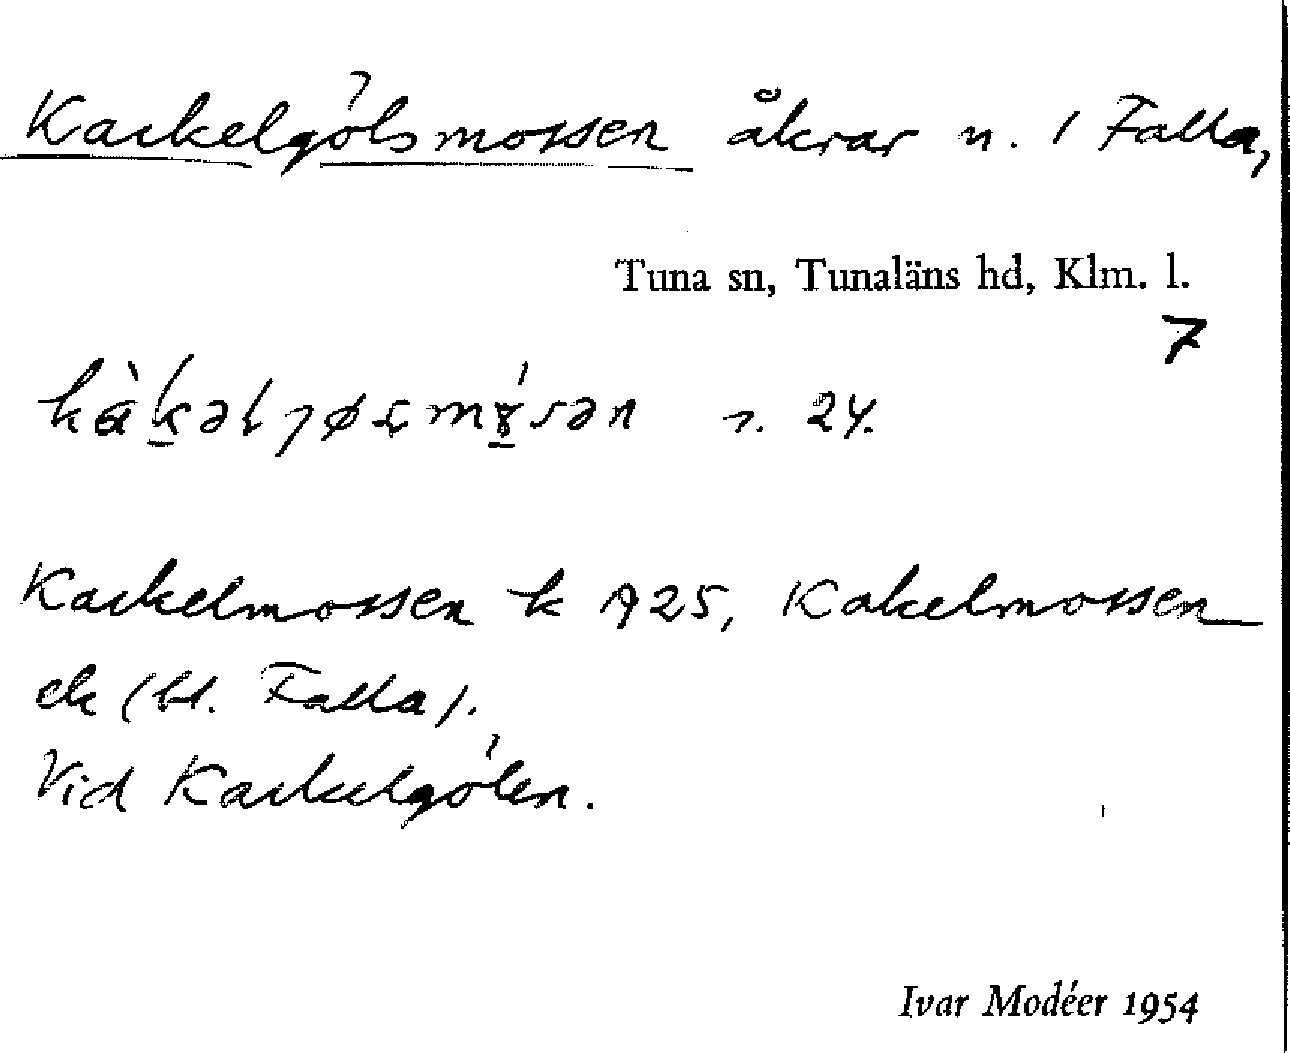 Kackelgölsmossen åkrar n. / Falla,
Tuna sn, Tunaläns hd, Klm. l.
7
24.
Kackelmossen k 925, Kakelmossen
ek (bl. Falla).
Vid Kackelgölen.
Ivar Modéer 1954